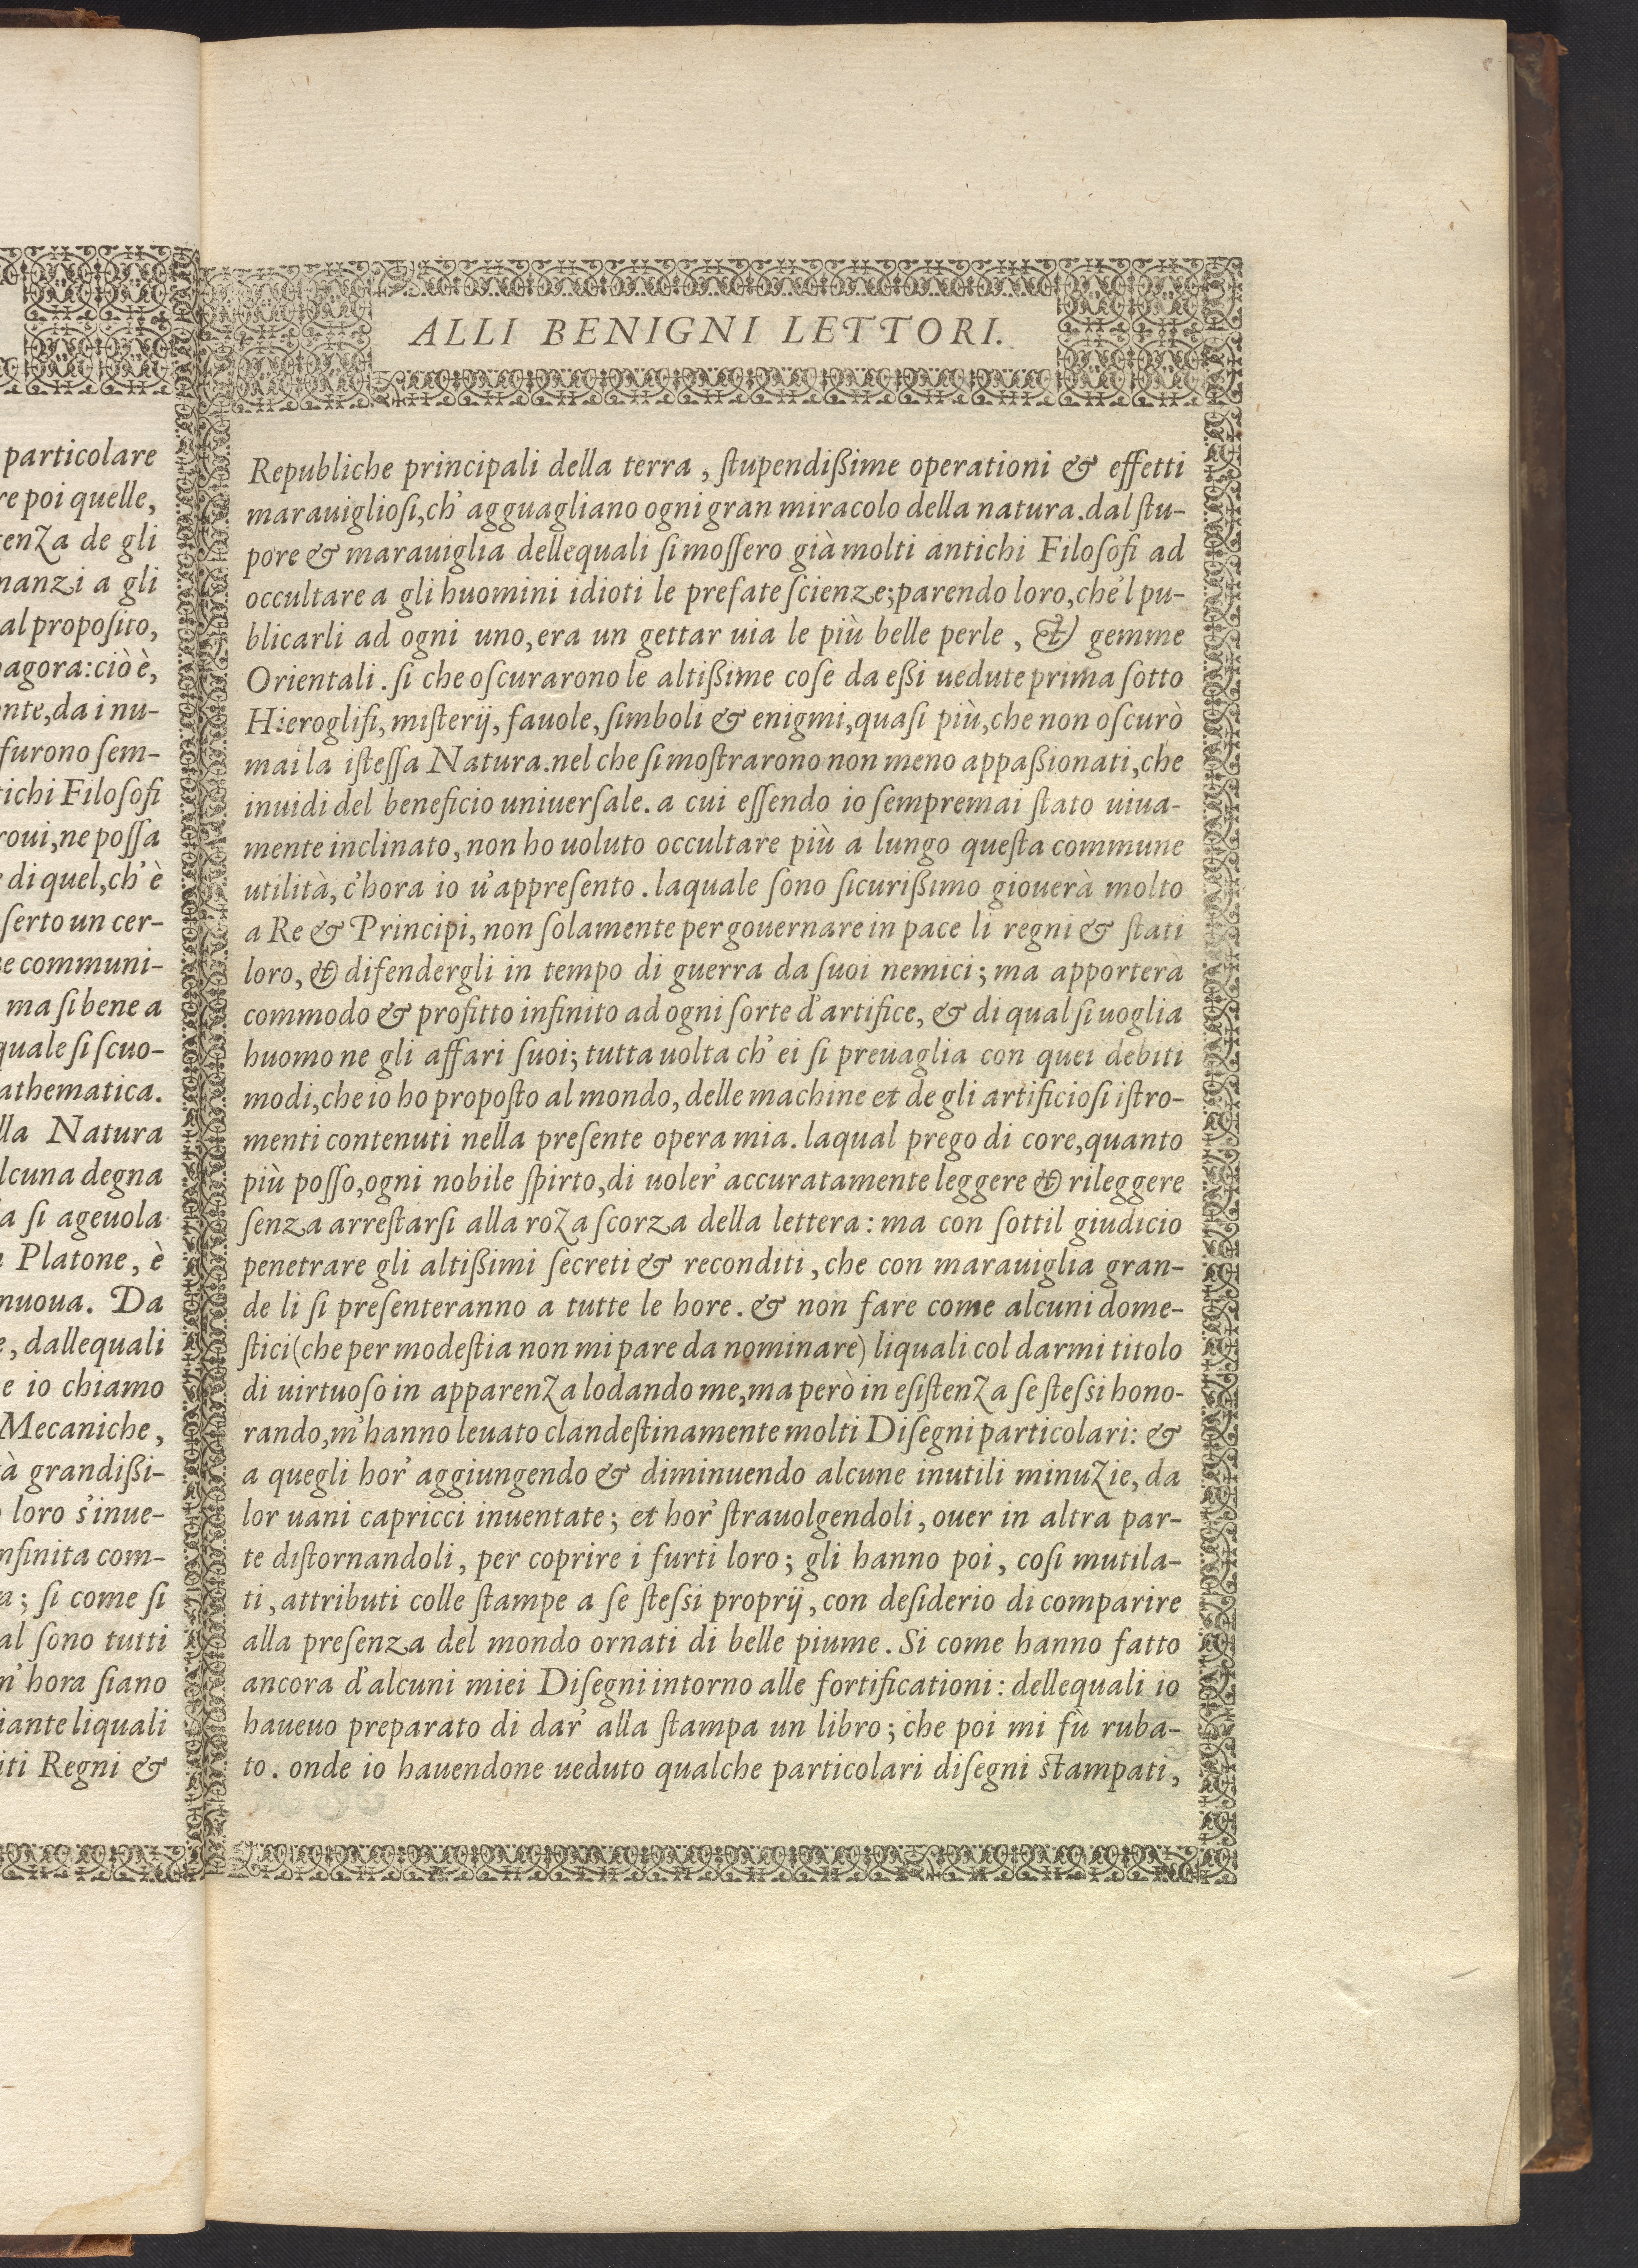 particolare
re poi quelle,
tenza de gli
nanzi a gli
al proposito,
agora: ciò è,
nte, da i nu-
furono sem-
tichi Filoſofi
roui, ne poſſa
di quel, ch'è
ſerto un cer-
e communi-
ma ſi bene a
quale ſi ſcuo-
athematica.
lla Natura
lcuna degna
a ſi ageuola
Platone, è
nuoua. Da
, dallequali
e io chiamo
Mecaniche,
tà grandißi-
loro s'inue-
nfinita com-
a; ſi come ſi
al ſono tutti
n'hora ſiano
iante liquali
iti Regni &
ALLI BENIGNI LETTORI.
Republiche principali della terra, ſtupendißime operationi & effetti
marauiglioſi, ch'agguagliano ogni gran miracolo della natura. dal ſtu-
pore & marauiglia dellequali ſi moſſero già molti antichi Filoſofi ad
occultare a gli huomini idioti le prefate ſcienze; parendo loro, che'l pu-
blicarli ad ogni uno, era un gettar uia le più belle perle, & gemme
Orientali. ſi che oſcurarono le altißime coſe da eßi uedute prima ſotto
Hieroglifi, miſterij, fauole, ſimboli & enigmi, quaſi più, che non oſcurò
mai la iſteſſa Natura. nel che ſi moſtrarono non meno appaßionati, che
inuidi del beneficio uniuerſale. a cui eſſendo io ſempremai ſtato uiua-
mente inclinato, non ho uoluto occultare più a lungo queſta commune
utilità, c'hora io u'appreſento. laquale ſono ſicurißimo giouerà molto
a Re & Principi, non ſolamente per gouernare in pace li regni & ſtati
loro, & difendergli in tempo di guerra da ſuoi nemici; ma apporterà
commodo & profitto infinito ad ogni ſorte d'artifice, & di qual ſi uoglia
huomo ne gli affari ſuoi; tutta uolta ch'ei ſi preuaglia con quei debiti
modi, che io ho propoſto al mondo, delle machine et de gli artificioſi iſtro-
menti contenuti nella preſente opera mia. laqual prego di core, quanto
più poſſo, ogni nobile ſpirto, di uoler' accuratamente leggere & rileggere
ſenza arreſtarſi alla roza ſcorza della lettera: ma con ſottil giudicio
penetrare gli altißimi ſecreti & reconditi, che con marauiglia gran-
de li ſi preſenteranno a tutte le hore. & non fare come alcuni dome-
ſtici (che per modeſtia non mi pare da nominare) liquali col darmi titolo
di uirtuoſo in apparenza lodando me, ma però in eſiſtenza ſe ſteſsi hono-
rando, m'hanno leuato clandeſtinamente molti Diſegni particolari: &
a quegli hor' aggiungendo & diminuendo alcune inutili minuzie, da
lor uani capricci inuentate; et hor' ſtrauolgendoli, ouer in altra par-
te diſtornandoli, per coprire i furti loro; gli hanno poi, coſi mutila-
ti, attributi colle ſtampe a ſe ſteſsi proprij, con deſiderio di comparire
alla preſenza del mondo ornati di belle piume. Si come hanno fatto
ancora d'alcuni miei Diſegni intorno alle fortificationi: dellequali io
haueuo preparato di dar' alla ſtampa un libro; che poi mi fù ruba-
to. onde io hauendone ueduto qualche particolari diſegni ſtampati,